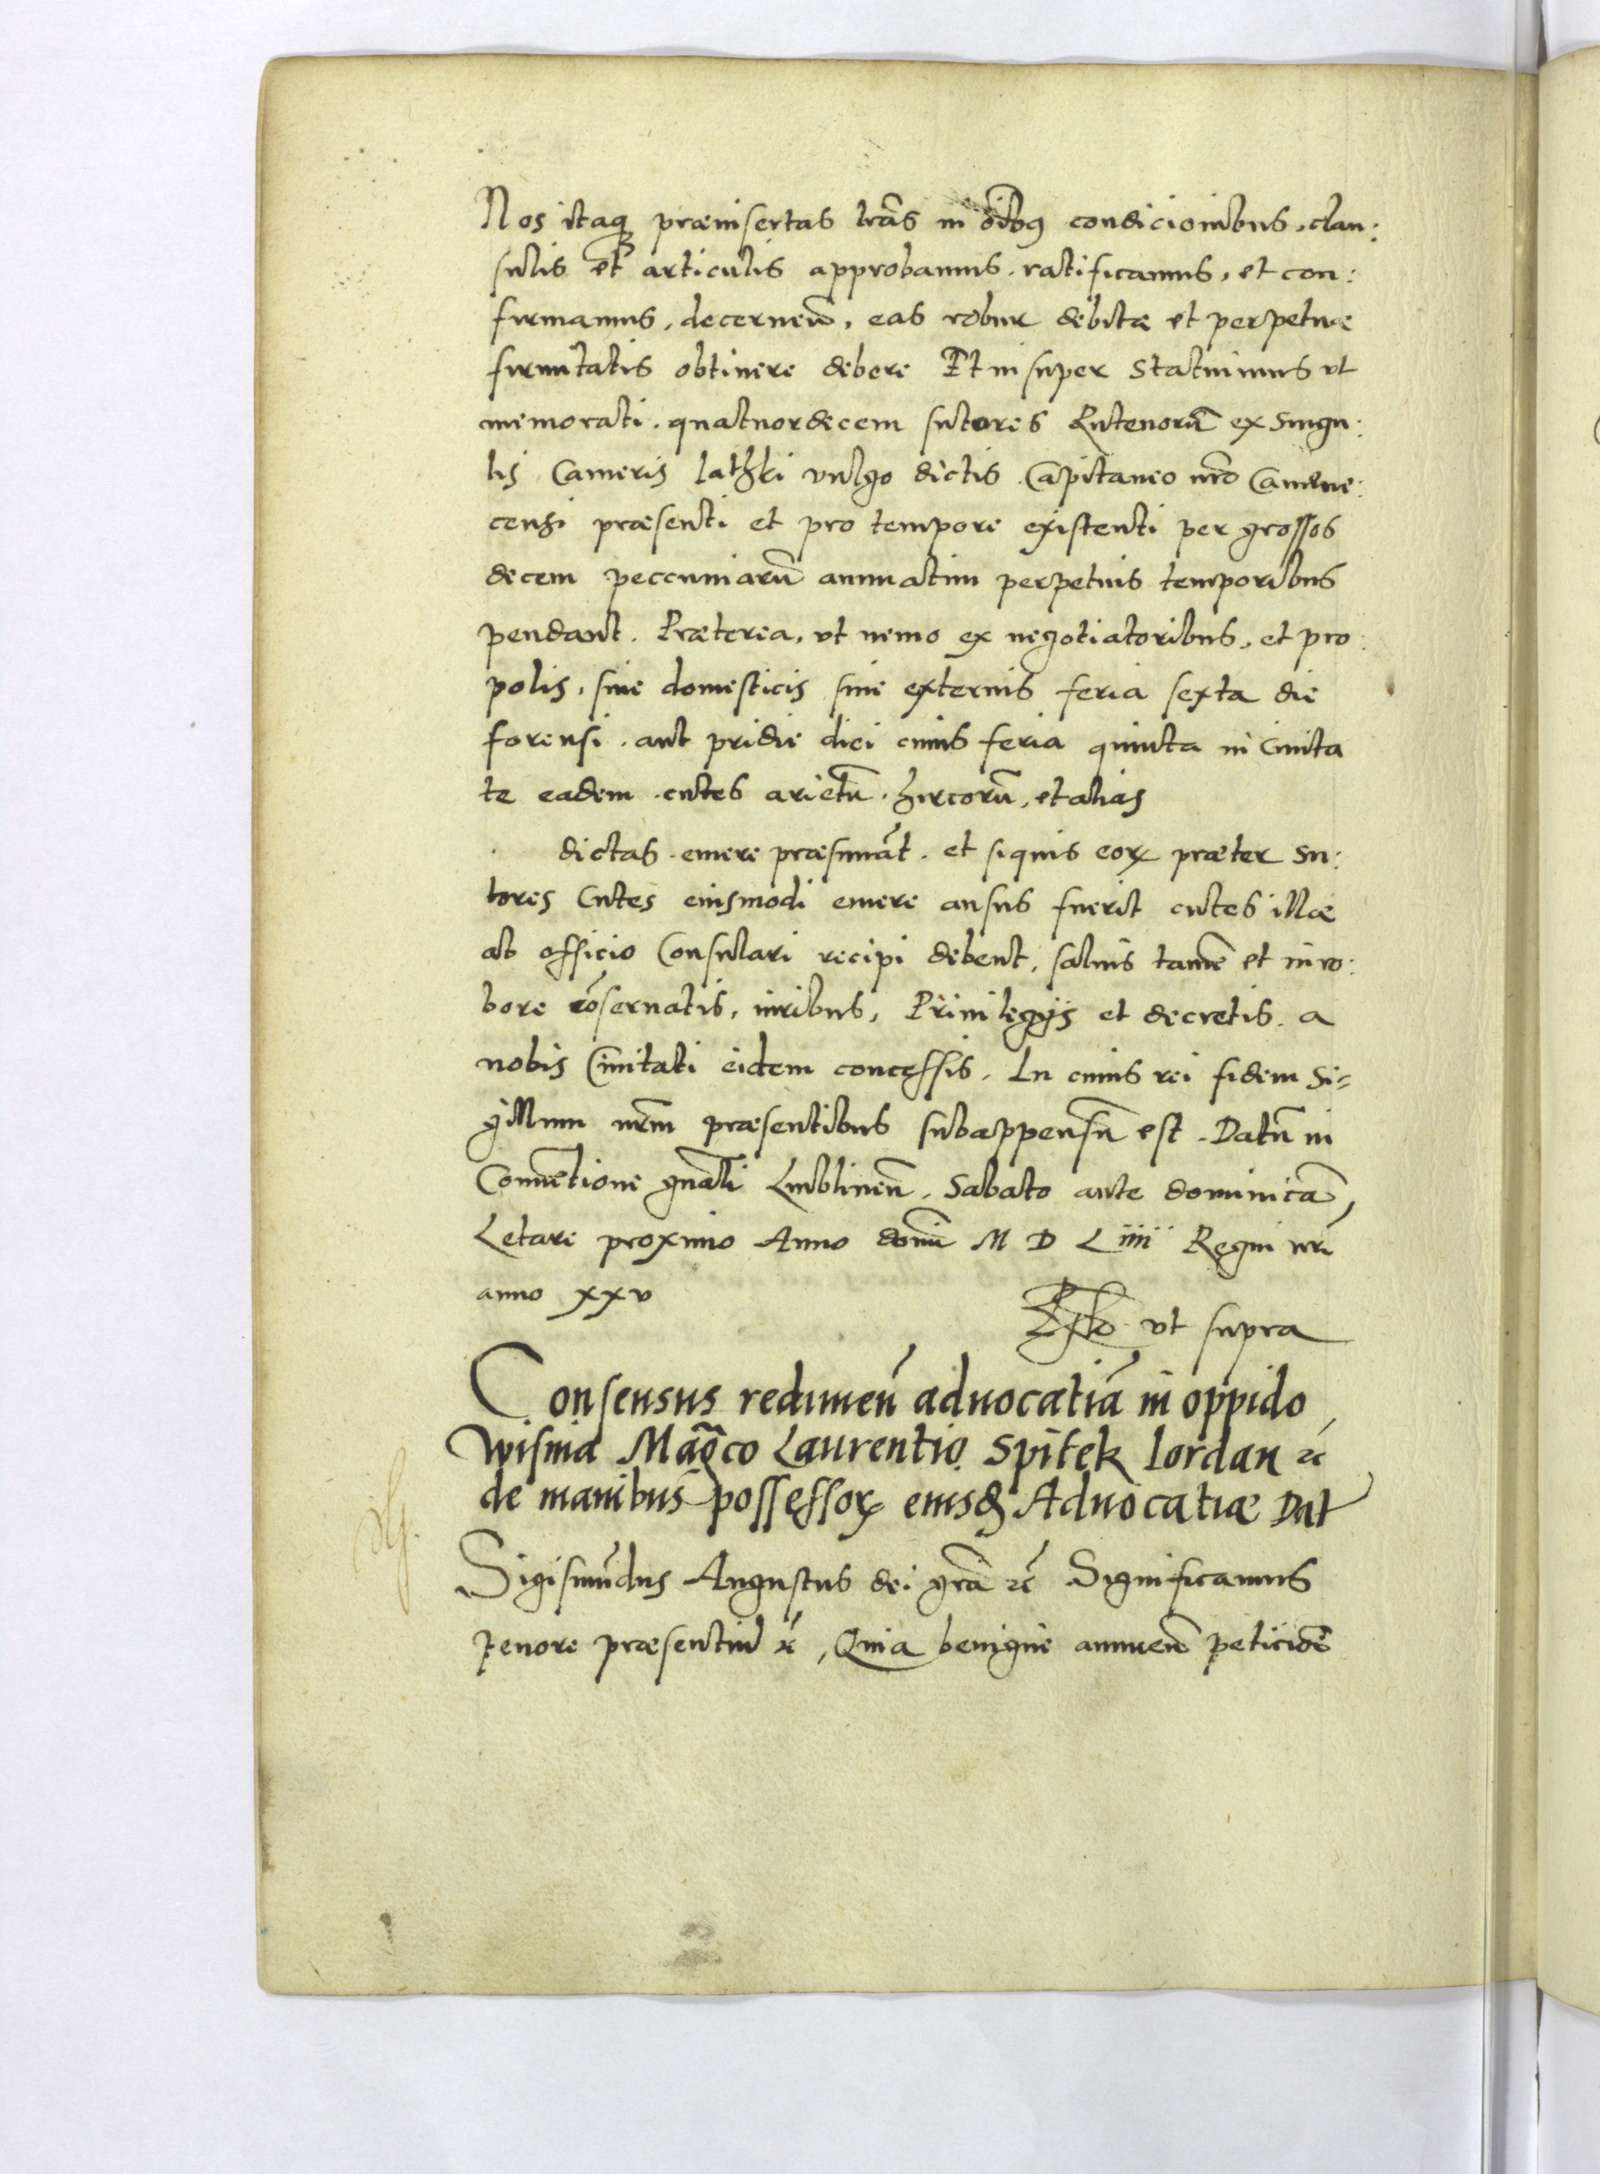 Nos itaq praeinsertas lrãs in oĩbq condicionibus, clau:
sulis et articulis approbamus. ratificamus, et con:
firmamus, decerneñ, eas robur debitae et perpetuae
firmitatis obtinere debere Et insuper Statuimus ut
memorati. quatuordecem sutores Rutenorũ ex Singu:
lis Cameris latzki vulgo dictis. Capitaneo nr̃o Camene:
censi praesenti et pro tempore existenti per grossos
decem peccuniarũ annuatim perpetuis temporibus
pendant. Praeterea, ut nemo ex negotiatoribus, et pro:
polis, siue domesticis siue externis feria sexta die
forensi. aut pridie diei cuius feria quinta in Ciuita
te eadem. cutes arietũ. hircorũ, et alias
dictas. emere praesumãt. et siquis eorx praeter Su:
tores Cutes eiusmodi emere ausus fuerit cutes illae
ab officio Consulari recipi debent, saluis tamẽ et in ro:
bore cõseruatis, iuribus, Priuilegijs et decretis. a
nobis Ciuitati eidem concessis. In cuius rei fidem Si=
gillum nrm̃ praesentibus subappensũ est. Datũ in
Conuẽtione gñali Lublineñ. Sabato ante dominicã,
Letare proximo Anno domĩ M D Liiii Regni nrĩ
anno xxv
ut supra
Consensus redimeñ aduocatiã in oppido
Wisnia Magco Laurentio Spitek Iordan rc
de manibus possessorx eiusd Aduocatiae Dat
Sigismũdus Augustus dei grã rc Significamus
tenore praesentiũ rc, Quia benigne annueñ peticiõẽ